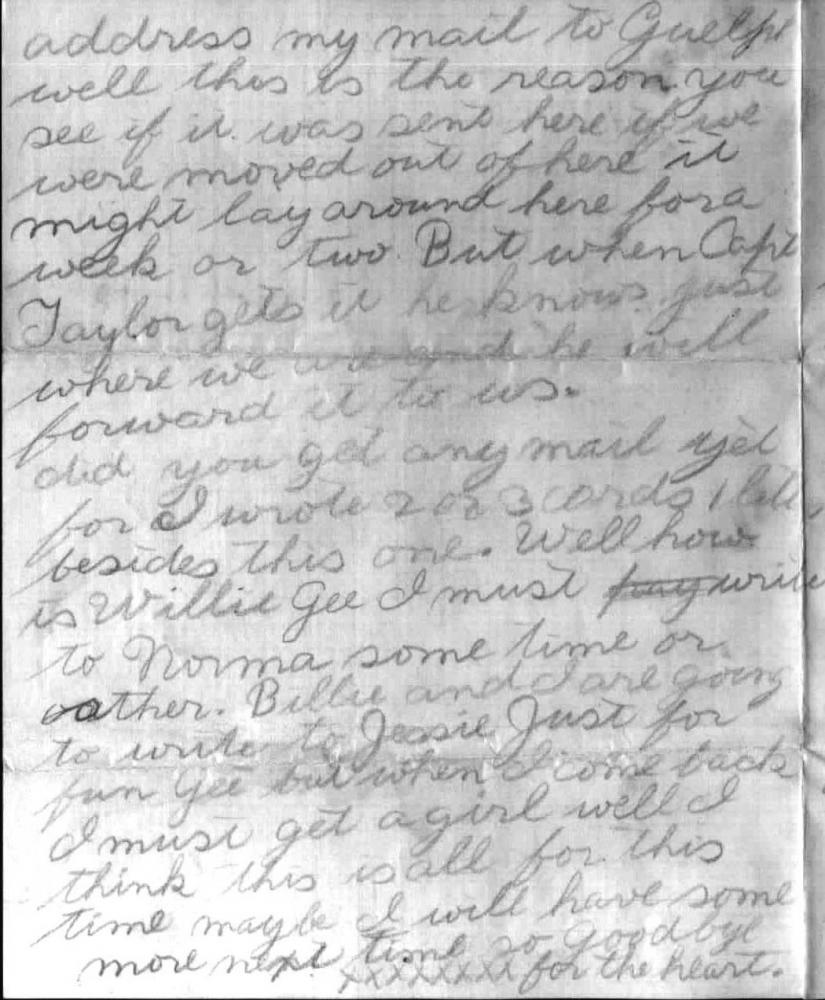 address my mail to Guelph
well this is the reason you
see if it was sent here if we
were moved out of here it
might lay around here for a
week or two. But when Capt
Taylor gets it he knows just
where we are and he will
forward it to us.
did you get any mail yet
for I wrote 2 or 3 cards 1 letter
besides this one. Well how
is Willie Gee I must write
to Norma some time or
oather. Billie and I are going
to write to Jessie Just for
fun Gee but when I come back
I must get a girl well I
think this is all for this
time maybe I will have some
more next time so goodbye
xxxxxxxx for the heart.